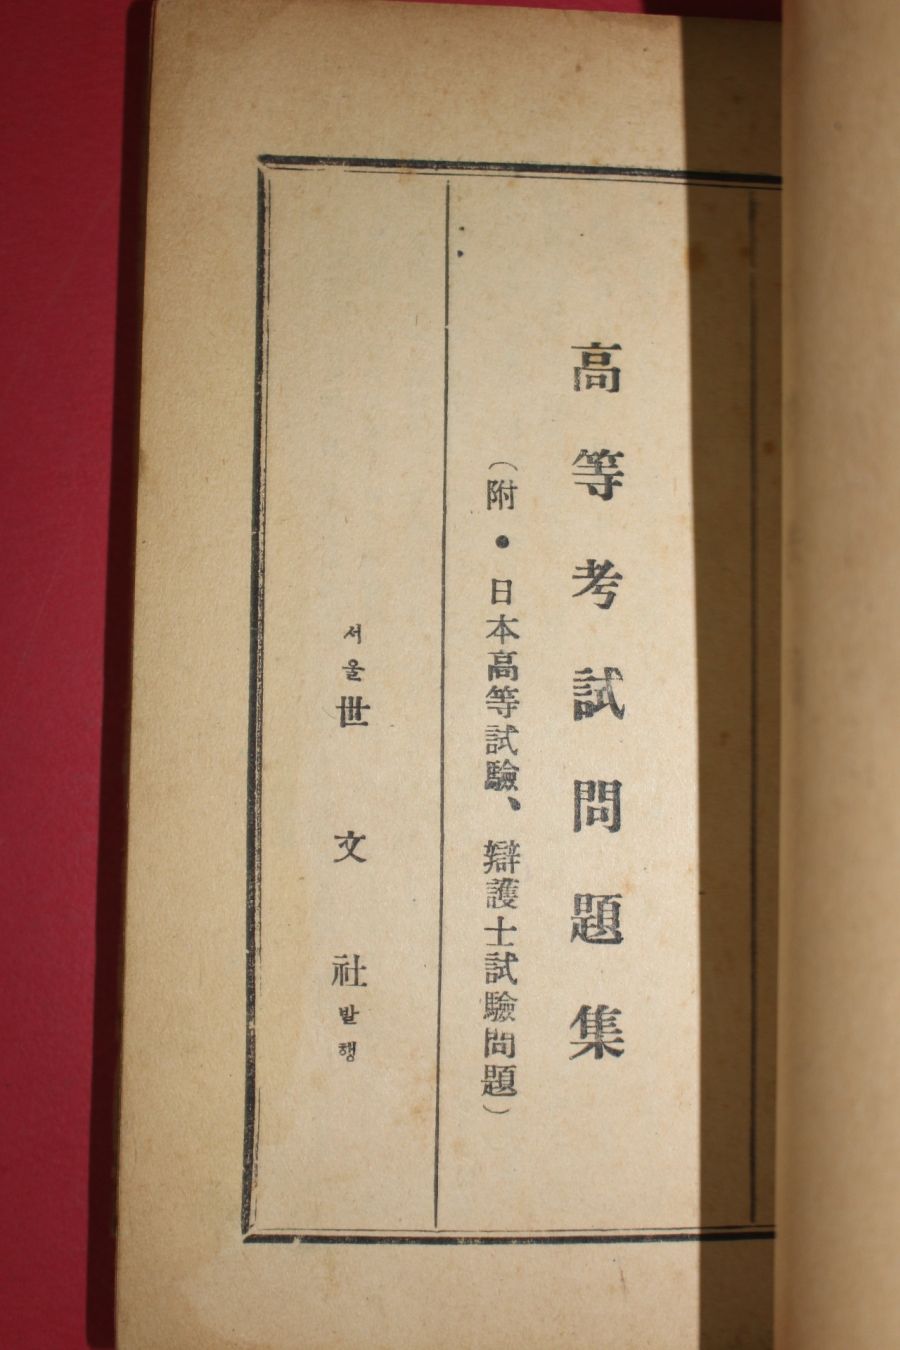 高等考試問題集
(附・日本高等試驗、辯護士試驗問題)
서울 世文社 발행